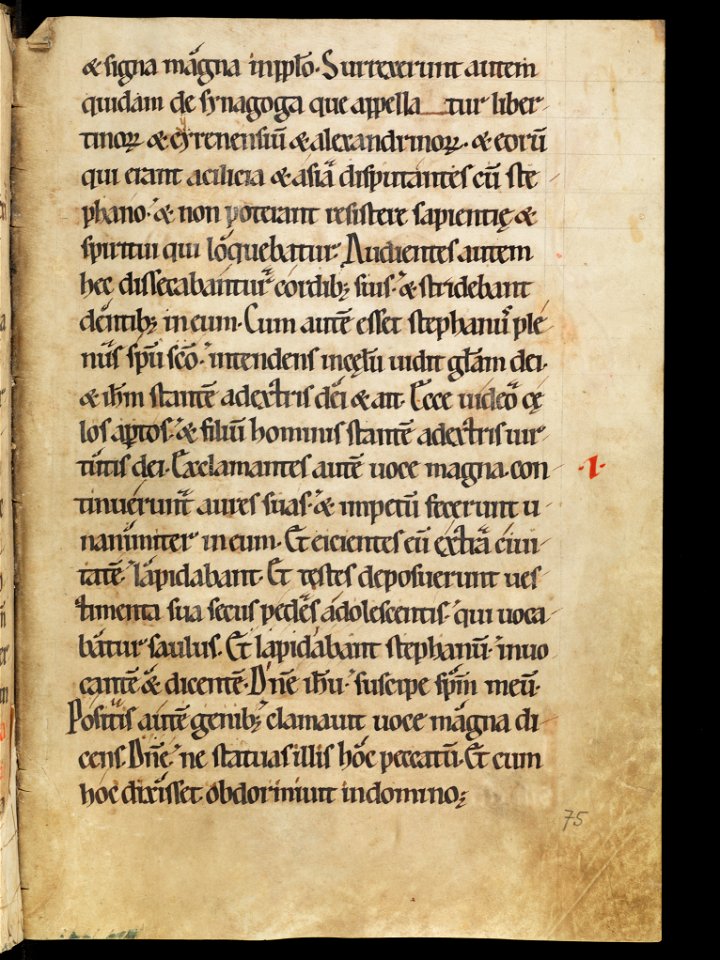 & signa magna inpplo. Surrexerunt autem
quidam de synagoga que appella__tur liber
tinoꝝ & cyrenensiū & alexandrinoꝝ. & eorū
qui erant acilicia & asia disputantes cū ste
phano. & non poterant resistere sapientię &
spiritui qui loquebatur. Audientes autem
hec dissecabantur cordibꝫ suis. & stridebant
dentibꝫ in eum. Cum autē esset stephanus ple
nus spū scō. intendens incęlū uidit glam dei.
& ihm stantē adextris dei & ait. Ecce uideo cę
los aptos. & filiū hominis stantē adextris uir
tutis dei. Exclamantes autē uoce magna. con
tinuerunt aures suas. & impetū fecerunt u
nanimiter in eum. Et eicientes eū extra ciui
tatē. lapidabant. Et testes deposuerunt ues
timenta sua secus pedes adolescentis. qui uoca
batur saulus. Et lapidabant stephanū. inuo
cantē & dicentē. Dn̄e ihu. suscipe spm̄ meū.
Positis autē genibꝫ clamauit uoce magna di
cens. Dn̄e. ne statuas illis hoc peccatū. Et cum
hoc dixisset. obdormiuit in domino;
·1·
75